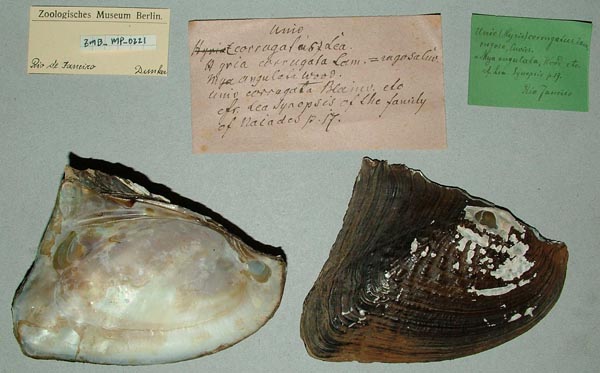 Zoologisches Museum Berlin.
ZMB_MP-0221
Rio de Janeiro Dunker
Unio
Hyria corrugatus Lea
Hyria corrugata Lam. = rugosa
Mya angulata Wood.
Unio corrugata Blainv. etc
cfr. Lea Synopsis of the family
of Naiades p. 17.
Unio (Hyria) corrugatus Lam.
rugosa,
Mya angulata, Wood. etc.
Lea Synopsis p. 17.
Rio Janeiro